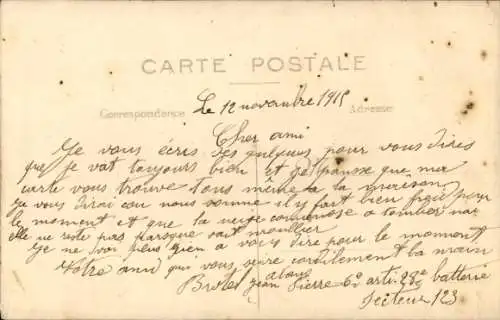 CARTE POSTALE
Correspondance Le 12 novembre 1915 Adresse
Cher ami
Je vous écris ses quelques pour vous dires
que je vat toujours bien et je pansse que ma
carte vous trouve tous même a la maison
je vous dirai cou nous somme il y fait bien froid pour
le moment et que la neige commense a tomber mai
elle ne reste pas parsque sait mouiller
Je ne voi plus rien a vous dire pour le moment
Votre ami qui vous serre cordilement la main
a vous
Brotel Jean Pierre 6e arti 23e batterie
Secteur 123